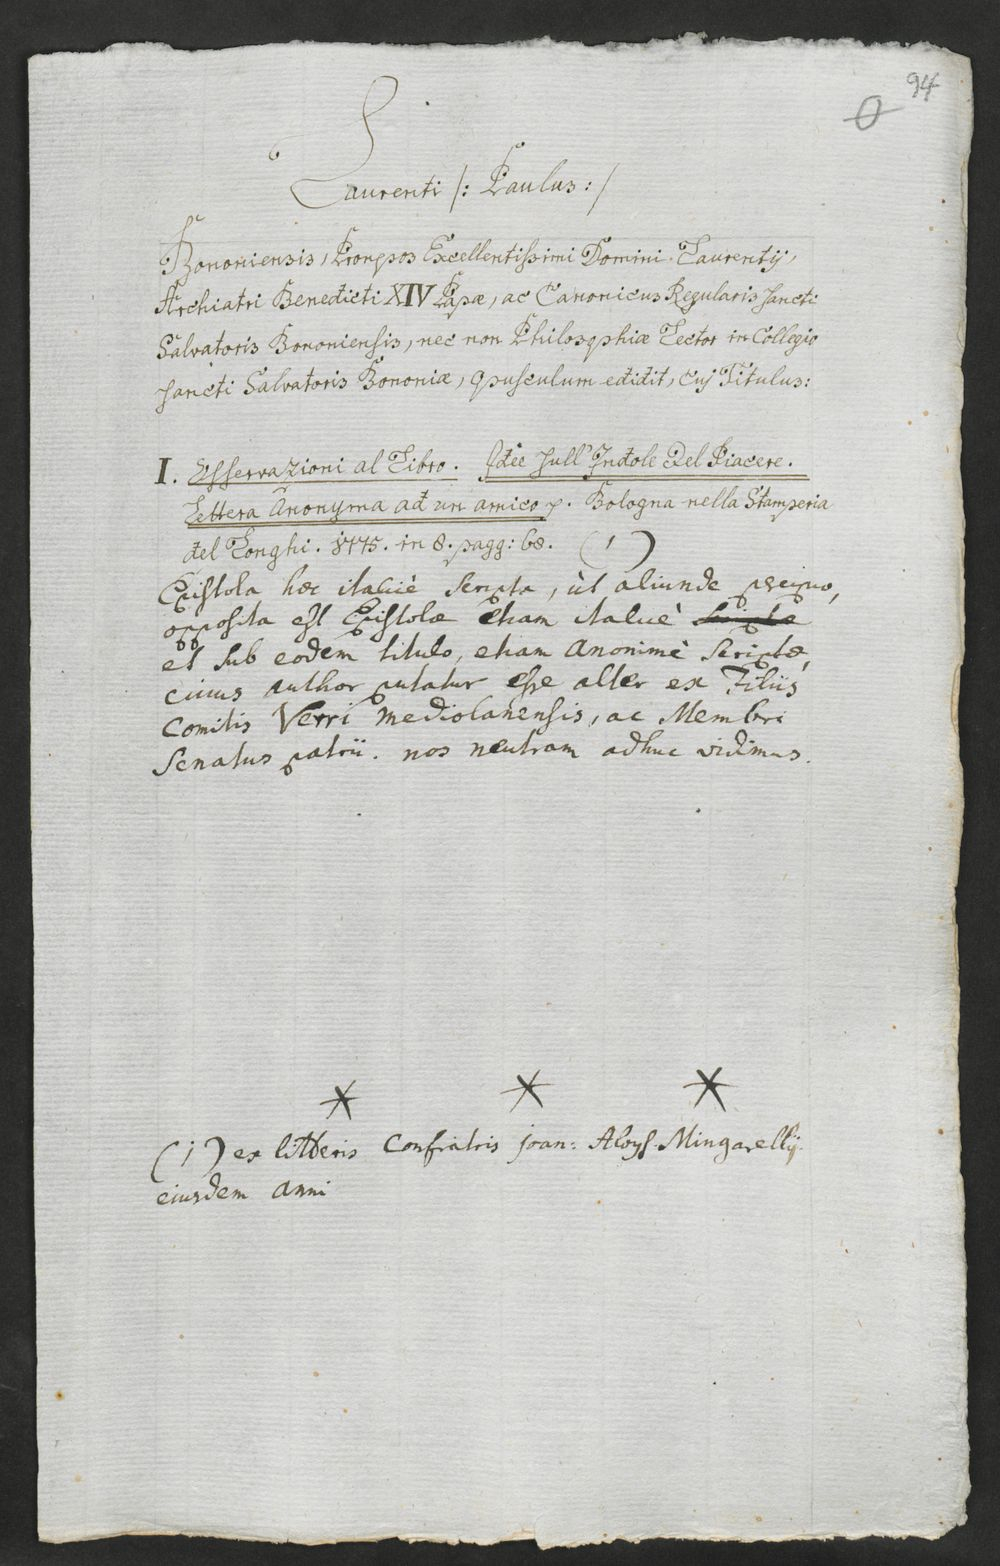 94
0
Laurenti /: Paulus: /
Bononiensis, Pronepos Excellentissimi Domini Laurentij,
Archiatri Benedicti XIV Papæ, ac Canonicus Regularis Sancti
Salvatoris Bononiensis, nec non Philosophiæ Lector in Collegio
Sancti Salvatoris Bononiæ, opusculum edidit, cuj Titulus:
I. Osservazioni al Libro. Idee sull'Indole Del Piacere.
Lettera Anonyma ad un amico p. Bologna nella Stamperia
del Longhi. 1775. in 8. pagg: 68. (1)
Epistola hæc italicè scripta, ut aliunde percipio,
opposita est Epistolæ etiam italicè scriptæ
et sub eodem titulo, etiam Anonimè scriptæ,
cuius author putatur esse alter ex Filiis
Comitis Verri Mediolanensis, ac Membri
Senatus patrii. nos neutram adhuc vidimus.
(1) ex litteris Confratris Joan: Aloys. Mingarellij
eiusdem anni